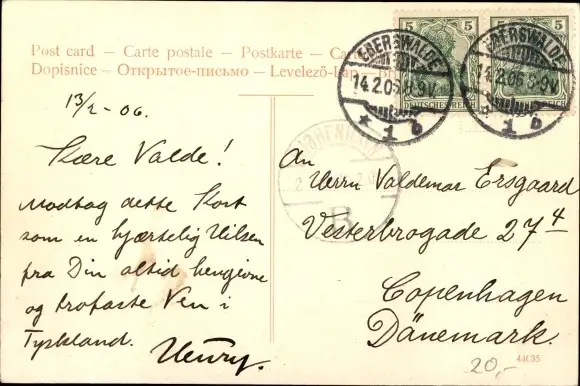 Post card — Carte postale — Postkarte — Ca
Dopisnice — Открытое-письмо — Levelező-Lap —
5 5
EBERSWALDE
14.2.06. 8-9V.
* 1 b
DEUTSCHES REICH
EBERSWALDE
14.2.06. 8-9V.
* 1 b
KJØBENHAVN
B
13/2 - 06.
Kære Valde!
Modtag dette Kort
som en hjærtelig Hilsen
fra Din altid hengivne
og trofaste Ven i
Tyskland.
Henry.
An
Herrn Valdemar Ersgaard
Vesterbrogade 27 4
Copenhagen
Dänemark.
20,-
44635